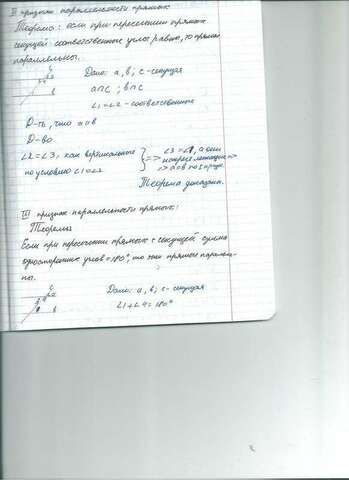 II признак параллельности прямых
Теорема: если при пересечении прямых
секущей соответственные углы равны, то прямые
параллельны.
Дано: a, b; c - секущая
a∩c; b∩c
∠1=∠2 - соответственные
Д-ть, что a∥b
Д-во
∠2=∠3, как вертикальные
по условию ∠1=∠2
=> ∠3=∠1, а они
накрест лежащие =>
=> a∥b по I призн.
Теорема доказана.
III признак параллельности прямых:
Теорема
Если при пересечении прямых с секущей сумма
односторонних углов = 180°, то эти прямые паралель-
ны.
c
a
b
Дано: a, b; c - секущая
∠1+∠4=180°